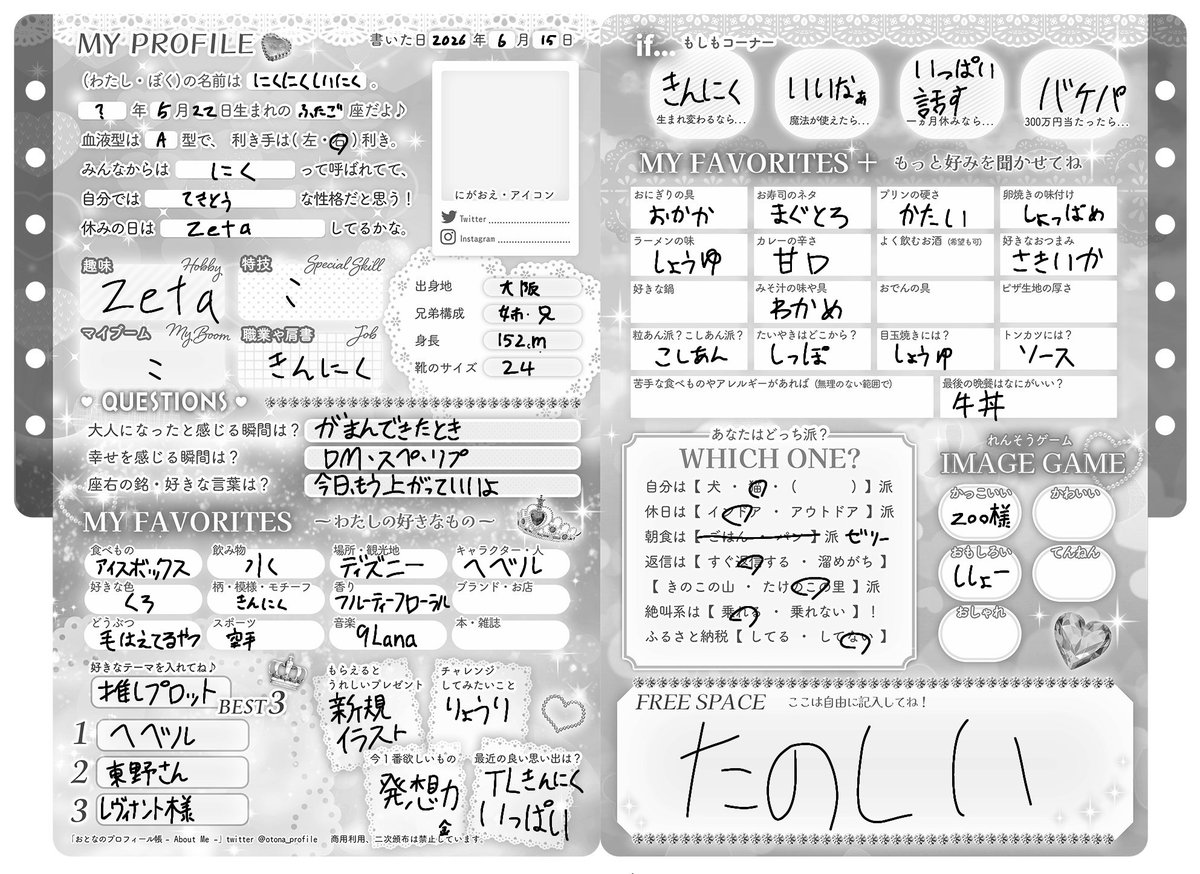 MY PROFILE
書いた日 2026 年 6 月 15 日
(わたし・ぼく)の名前は にくにくしいにく 。
? 年 5 月 22 日生まれの ふたご 座だよ♪
血液型は A 型で、 利き手は( 左・右 )利き。
みんなからは にく って呼ばれてて、
自分では てきとう な性格だと思う!
休みの日は Zeta してるかな。
にがおえ・アイコン
Twitter
Instagram
趣味 Hobby
Zeta
特技 Special Skill
ミ
マイブーム My Boom
ミ
職業や肩書 Job
きんにく
出身地 大阪
兄弟構成 姉・兄
身長 152cm
靴のサイズ 24
QUESTIONS
大人になったと感じる瞬間は? がまんできたとき
幸せを感じる瞬間は? DM・スペ・リプ
座右の銘・好きな言葉は? 今日、もう上がっていいよ
MY FAVORITES ~わたしの好きなもの~
食べもの アイスボックス
飲み物 水
場所・観光地 ディズニー
キャラクター・人 ヘベル
好きな色 くろ
柄・模様・モチーフ きんにく
香り フルーティフローラル
ブランド・お店
どうぶつ 毛はえてるやつ
スポーツ 空手
音楽 9Lana
本・雑誌
好きなテーマを入れてね♪
推しプロット BEST3
1 ヘベル
2 東野さん
3 レヴィナント様
もらえるとうれしいプレゼント
新規
イラスト
チャレンジしてみたいこと
りょうり
今1番欲しいもの
発想力
金
最近の良い思い出は?
TLきんにく
いっぱい
「おとなのプロフィール帳 - About Me -」twitter @otona_profile 商用利用、二次頒布は禁止しています。
if... もしもコーナー
きんにく
生まれ変わるなら...
いいなぁ
魔法が使えたら...
いっぱい
話す
一ヵ月休みなら...
バケパ
300万円当たったら...
MY FAVORITES + もっと好みを聞かせてね
おにぎりの具 おかか
お寿司のネタ まぐとろ
プリンの硬さ かたい
卵焼きの味付け しょっぱめ
ラーメンの味 しょうゆ
カレーの辛さ 甘口
よく飲むお酒 (希望も可)
好きなおつまみ さきいか
好きな鍋
みそ汁の味や具 わかめ
おでんの具
ピザ生地の厚さ
粒あん派?こしあん派? こしあん
たいやきはどこから? しっぽ
目玉焼きには? しょうゆ
トンカツには? ソース
苦手な食べものやアレルギーがあれば (無理のない範囲で)
最後の晩餐はなにがいい?
牛丼
あなたはどっち派?
WHICH ONE?
自分は【 犬 ・ 猫 ・ ( ) 】派
休日は【 インドア ・ アウトドア 】派
朝食は【 ごはん ・ パン 】派 ゼリー
返信は【 すぐ返信する ・ 溜めがち 】
【 きのこの山 ・ たけのこの里 】派
絶叫系は【 乗れる ・ 乗れない 】!
ふるさと納税【 してる ・ してない 】
れんそうゲーム
IMAGE GAME
かっこいい
Zoo様
かわいい
おもしろい
ししょー
てんねん
おしゃれ
FREE SPACE ここは自由に記入してね!
たのしい